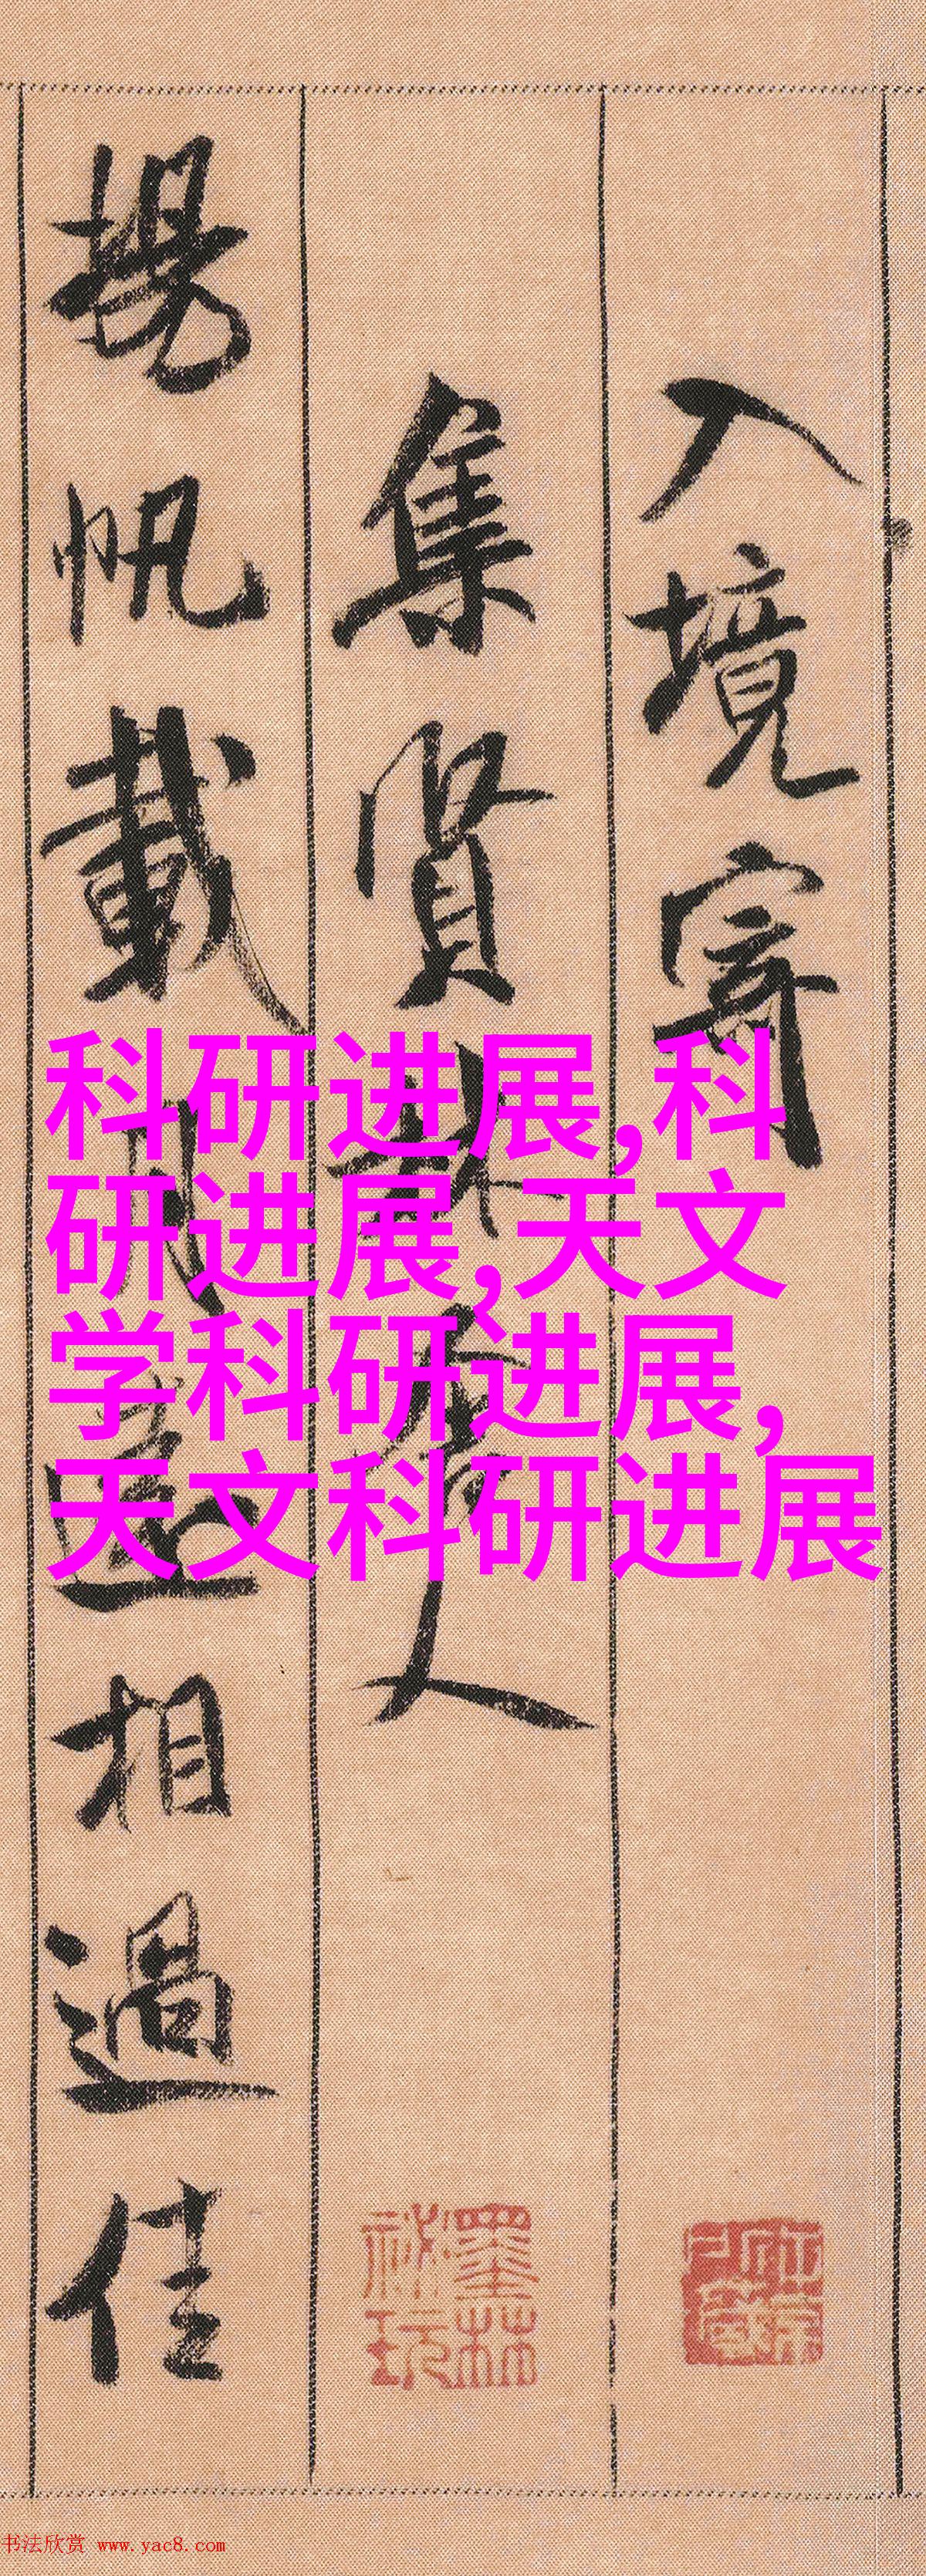 入境寄
集賢林舍人
揚帆載月遠相過佳
科研进展,科
研进展,天文
学科研进展,
天文科研进展
墨林
秘玩
书法欣赏 www.yac8.com